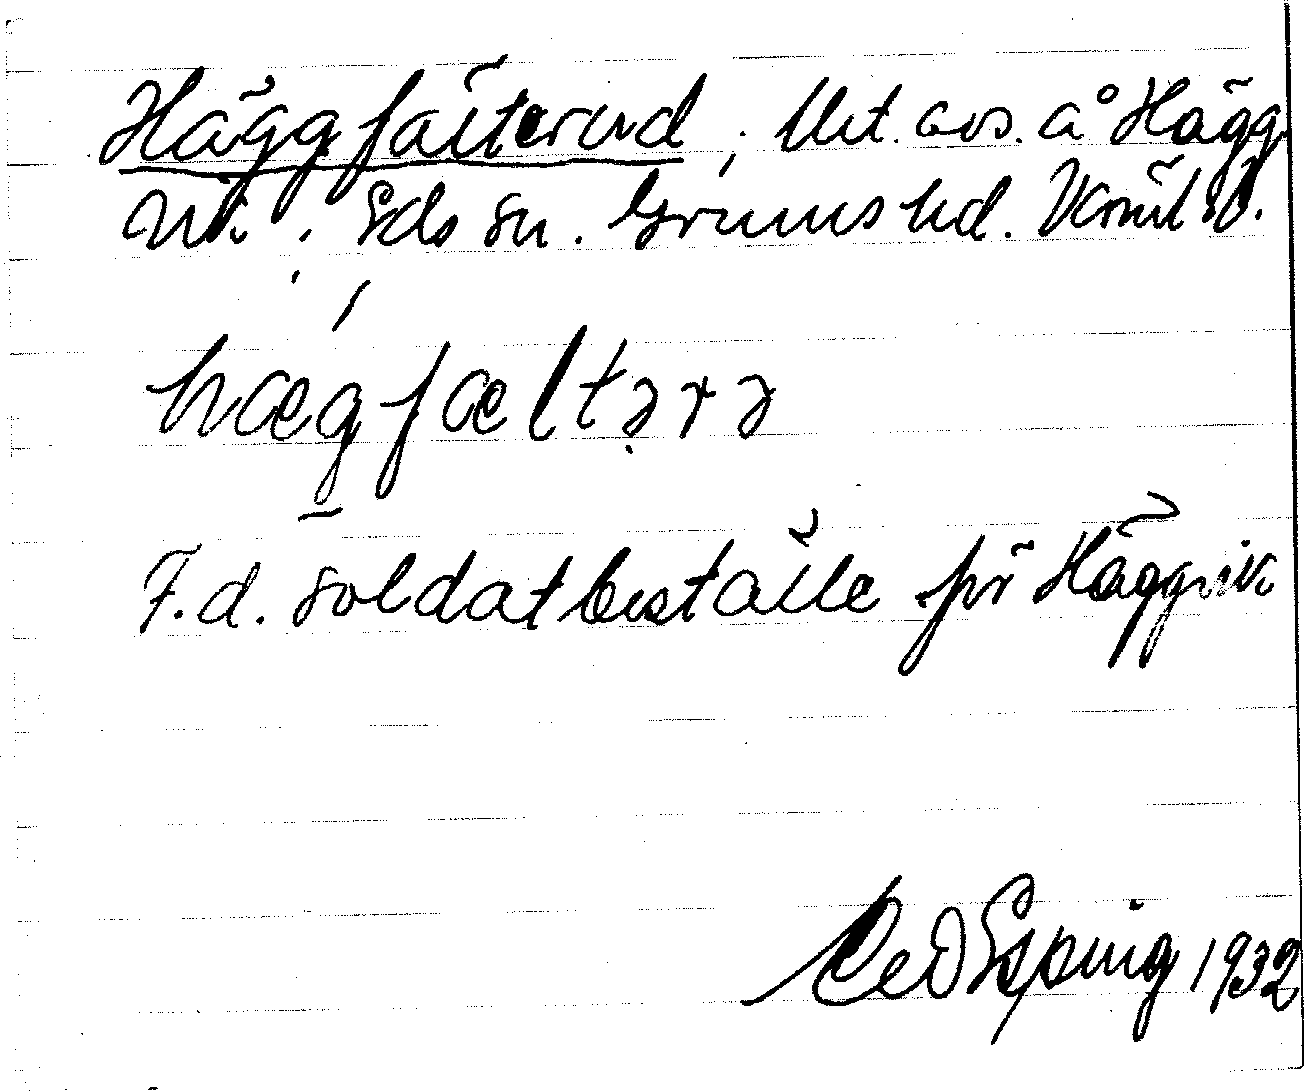 Häggfälterud, Utt. avs. å Hägg
vik, Eds sn. Grums hd. Vrml. 
hægfæltərə
F.d. soldatboställe för Häggvik
Espring 1932